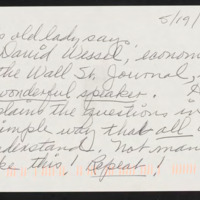 5/19/
s old lady says,
David Wessel, econom
the Wall St. Journal,
wonderful speaker.
plains the questions in
imple way that all
derstand. Not man
ke this! Repeat!